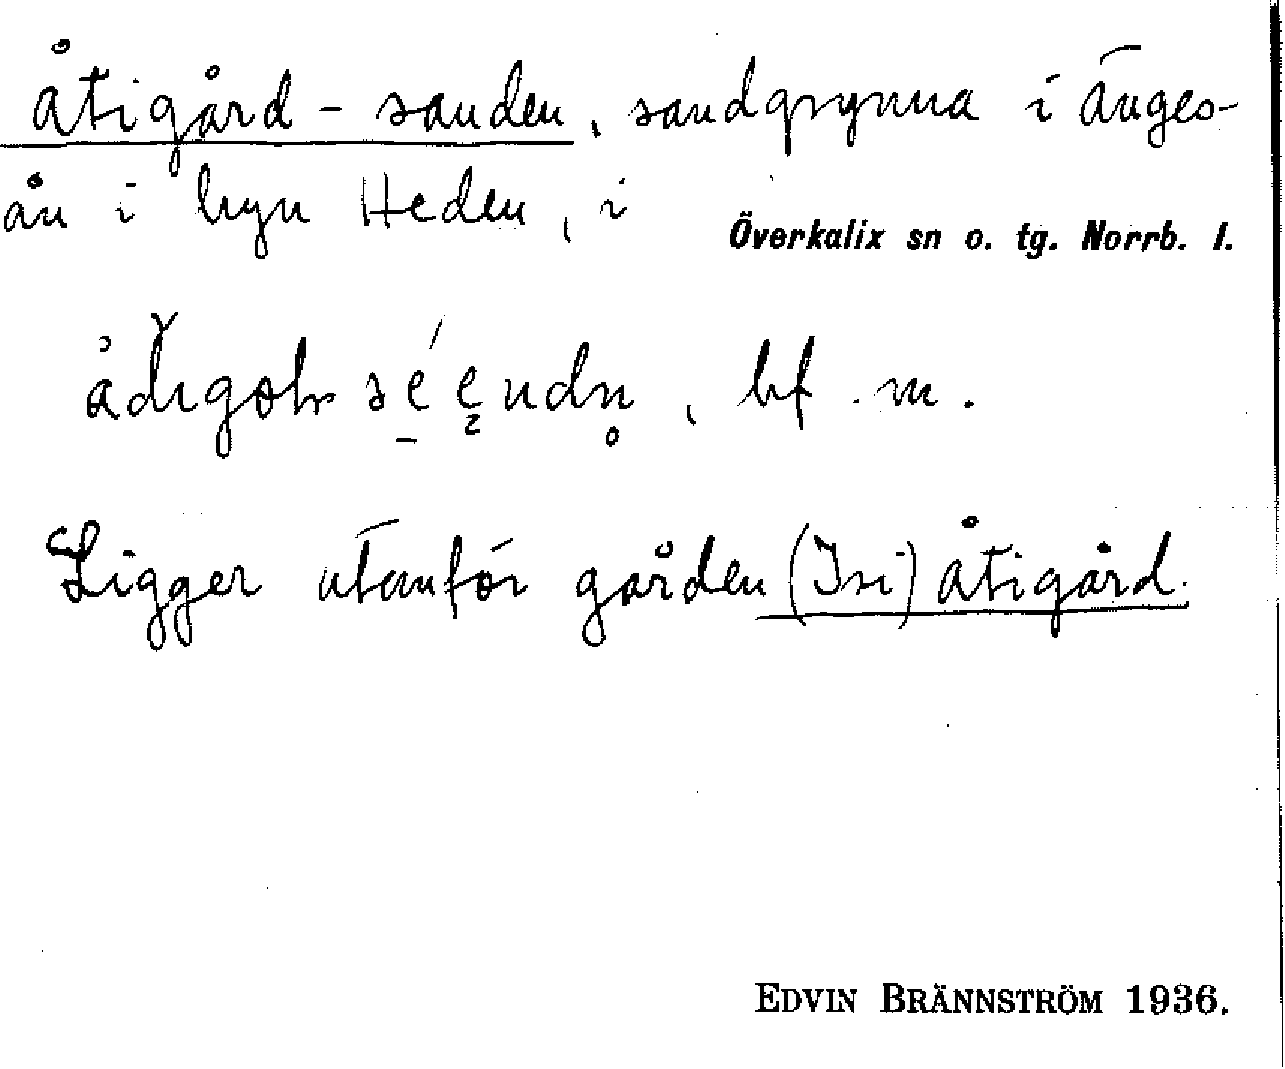 åtigård-sanden, sandgrynna i änges-
ån i byn Heden, i Överkalix sn o. tg. Norrb. l.
bf. m.
Ligger utanför gården (Isi) åtigård.
EDVIN BRÄNNSTRÖM 1936.